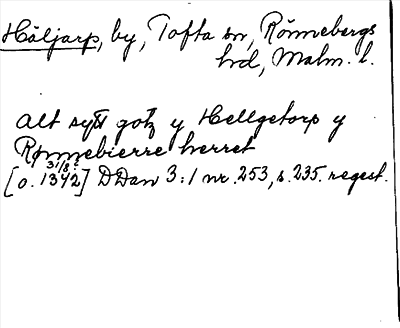 Häljarp, by, Tofta sn, Rönnebergs
hd, Malm. l.
alt sytt gotz y Hellgetorp y
Rønnebierre herret
31/8
[o. 1342] DDan 3:1 nr. 253, s. 235. regest.